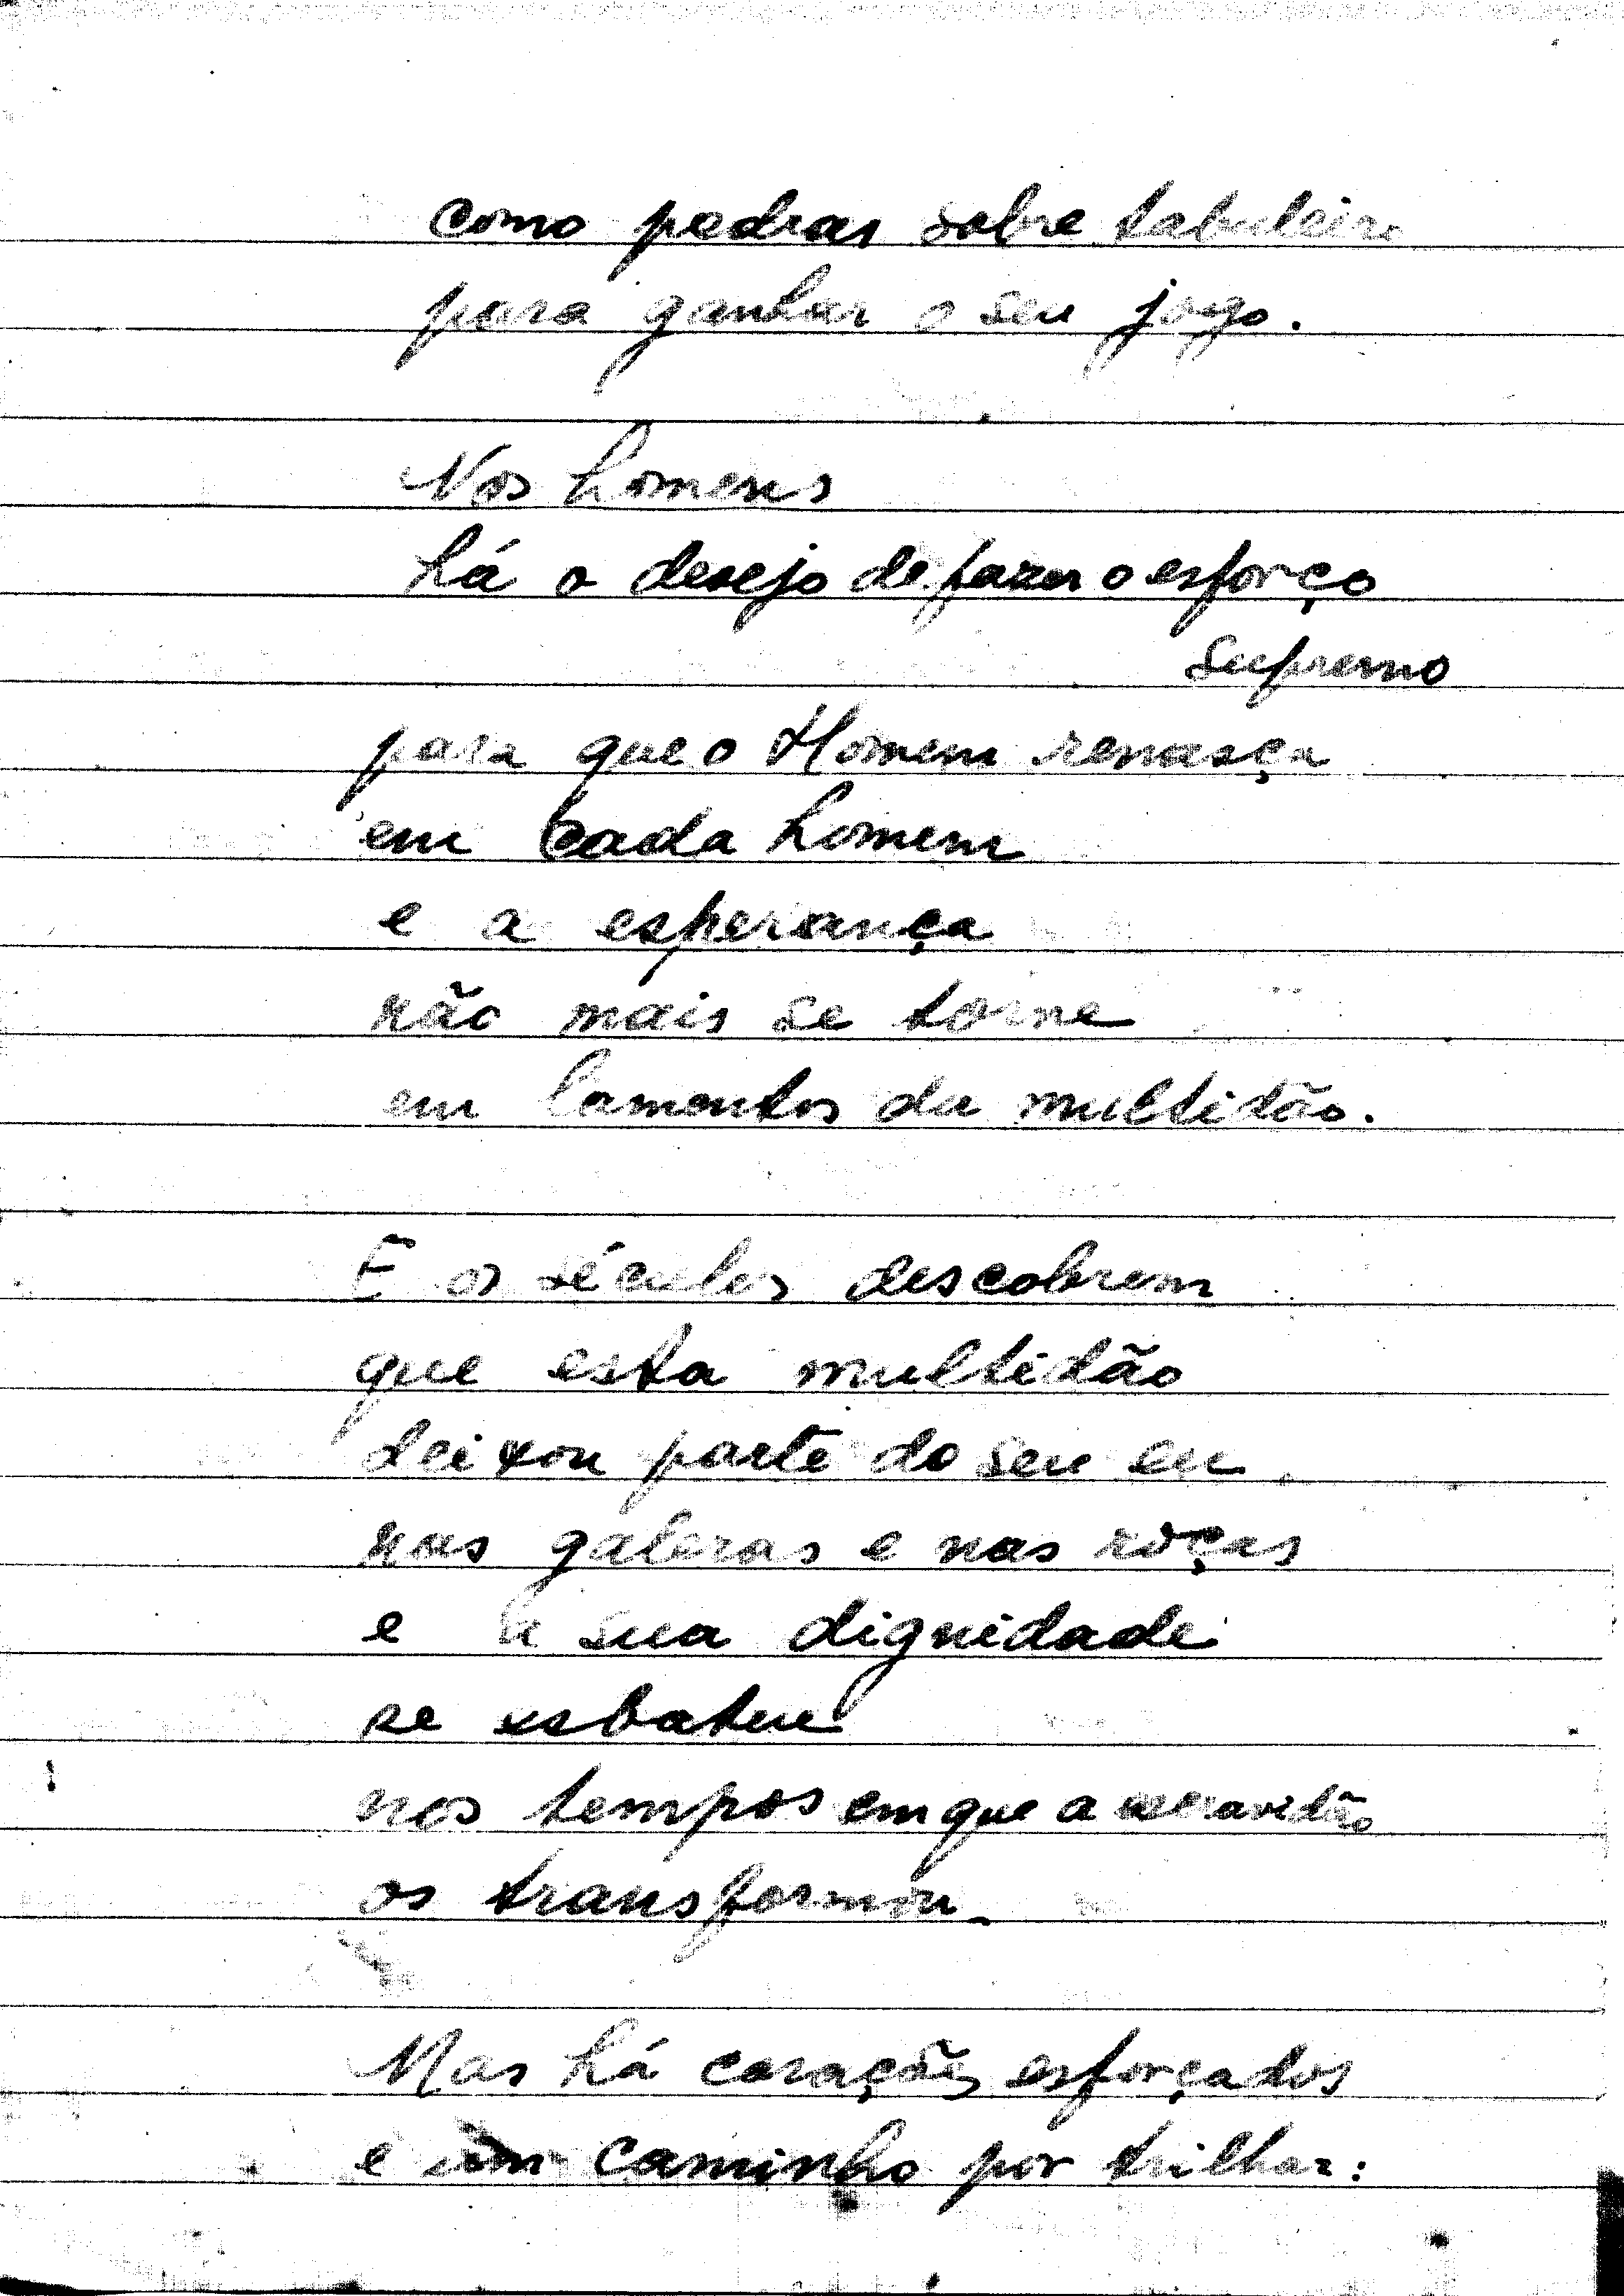 como pedras sobre tabuleiro
para ganhar o seu jogo.
Nos homens
há o desejo de fazer o esforço
supremo
para que o Homem renasça
em cada homem
e a esperança
não mais se torne
em lamentos da multidão.
E os séculos descobrem
que esta multidão
deixou parte do seu eu
nas galeras e nas roças
e a sua dignidade
se esbateu
nos tempos em que a escravidão
os transformou.
Mas há corações esforçados
e um caminho por trilhar: